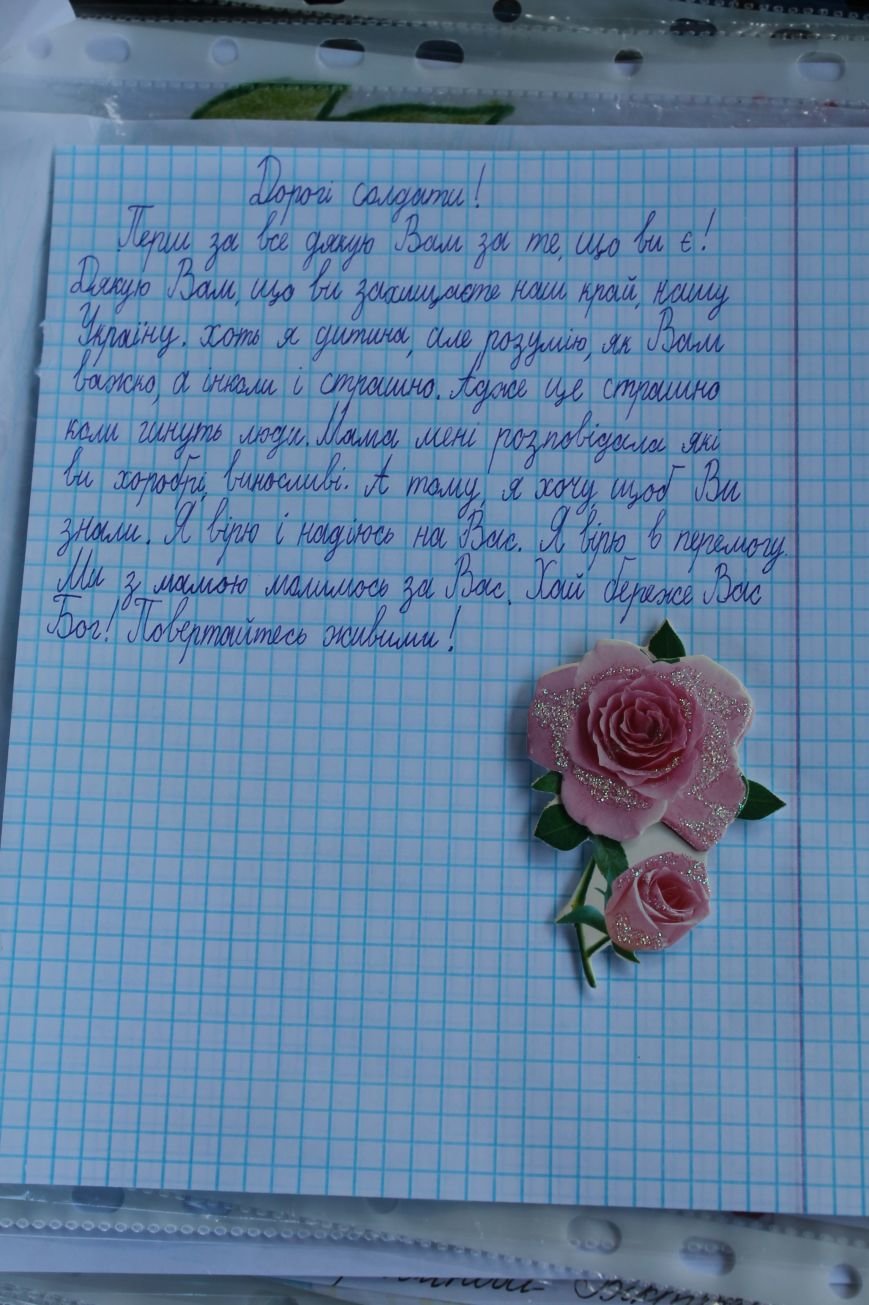 Дорогі солдати!
Перш за все дякую Вам за те, що ви є!
Дякую Вам, що ви захищаєте наш край, нашу
Україну. хоть я дитина, але розумію, як Вам
важко, а інколи і страшно. Адже це страшно
коли гинуть люди. Мама мені розповідала які
ви хоробрі, виносливі. А тому, я хочу щоб Ви
знали. Я вірю і надіюсь на Вас. Я вірю в перемогу.
Ми з мамою молимось за Вас. Хай береже Вас
Бог! Повертайтесь живими!